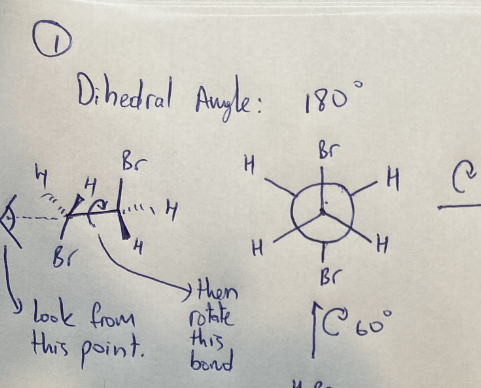 1
Dihedral Angle: 180°
H H Br H H Br
look from
this point.
then
rotate
this
bond
Br H H H H Br
60°